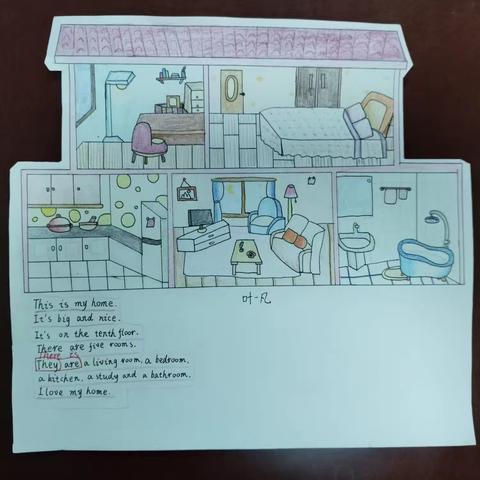 叶一凡
This is my home.
It's big and nice.
It's on the tenth floor.
There are five rooms.
There is
They are a living room, a bedroom,
a kitchen, a study and a bathroom.
I love my home.